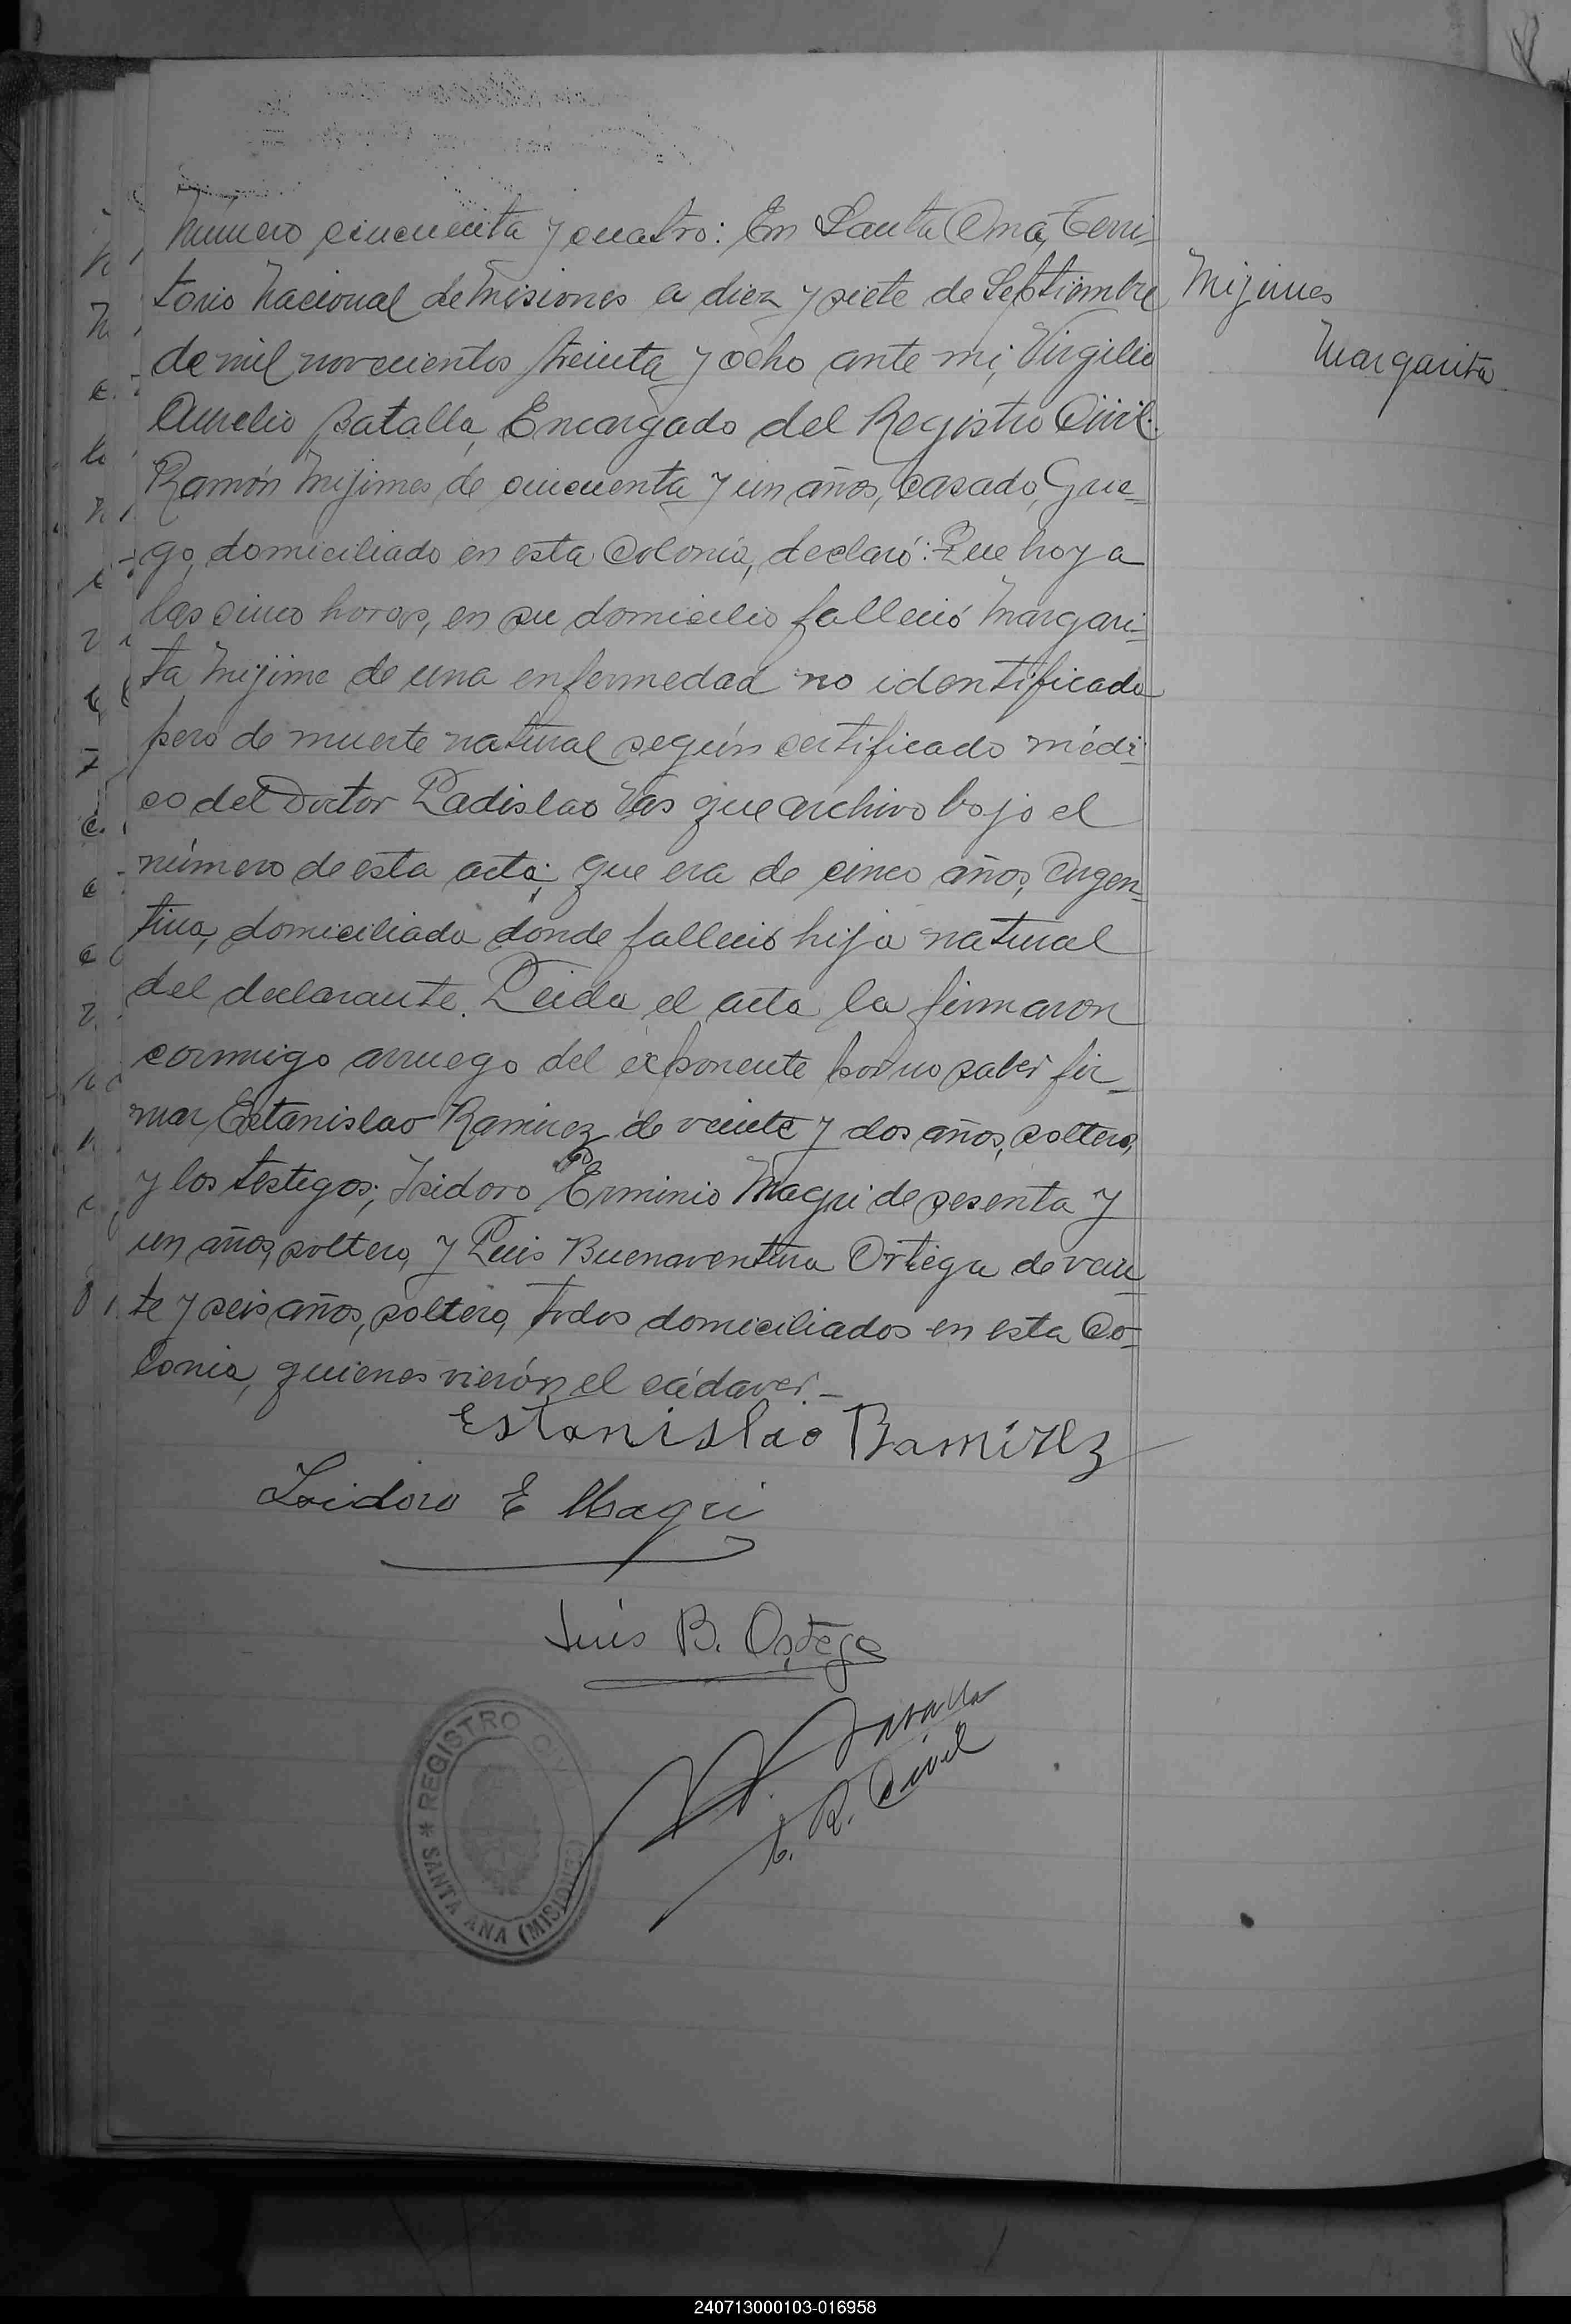 Número cincuenta y cuatro: En Santa Ana, Terri-
torio Nacional de Misiones a diez y siete de Septiembre
de mil novecientos treinta y ocho ante mi, Virgilio
Aurelio Batalla, Encargado del Registro Civil.
Ramón Mijimes de cincuenta y un años, casado, Grie-
go, domiciliado en esta Colonia, declaró: Que hoy a
las cinco horas, en su domicilio falleció Margari-
ta Mijime de una enfermedad no identificada
pero de muerte natural según certificado médi-
co del Doctor Ladislao Vas que archivo bajo el
número de esta acta; que era de cinco años, Argen-
tina, domiciliada donde falleció hija natural
del declarante. Leida el acta la firmaron
conmigo a ruego del exponente por no saber fir-
mar, Estanislao Ramirez de veinte y dos años, soltero,
y los testigos; Isidoro Erminio Magri de sesenta y
un años, soltero, y Luis Buenaventura Ortega de vein-
te y seis años, soltero, todos domiciliados en esta Co-
lonia, quienes vierón el cádaver.-
Mijimes
Margarita
Estanislao Ramirez
Isidoro E Magri
Luis B. Ortega
V. A. Batalla
E. R. Civil
* REGISTRO CIVIL * SANTA ANA (MISIONES)
240713000103-016958